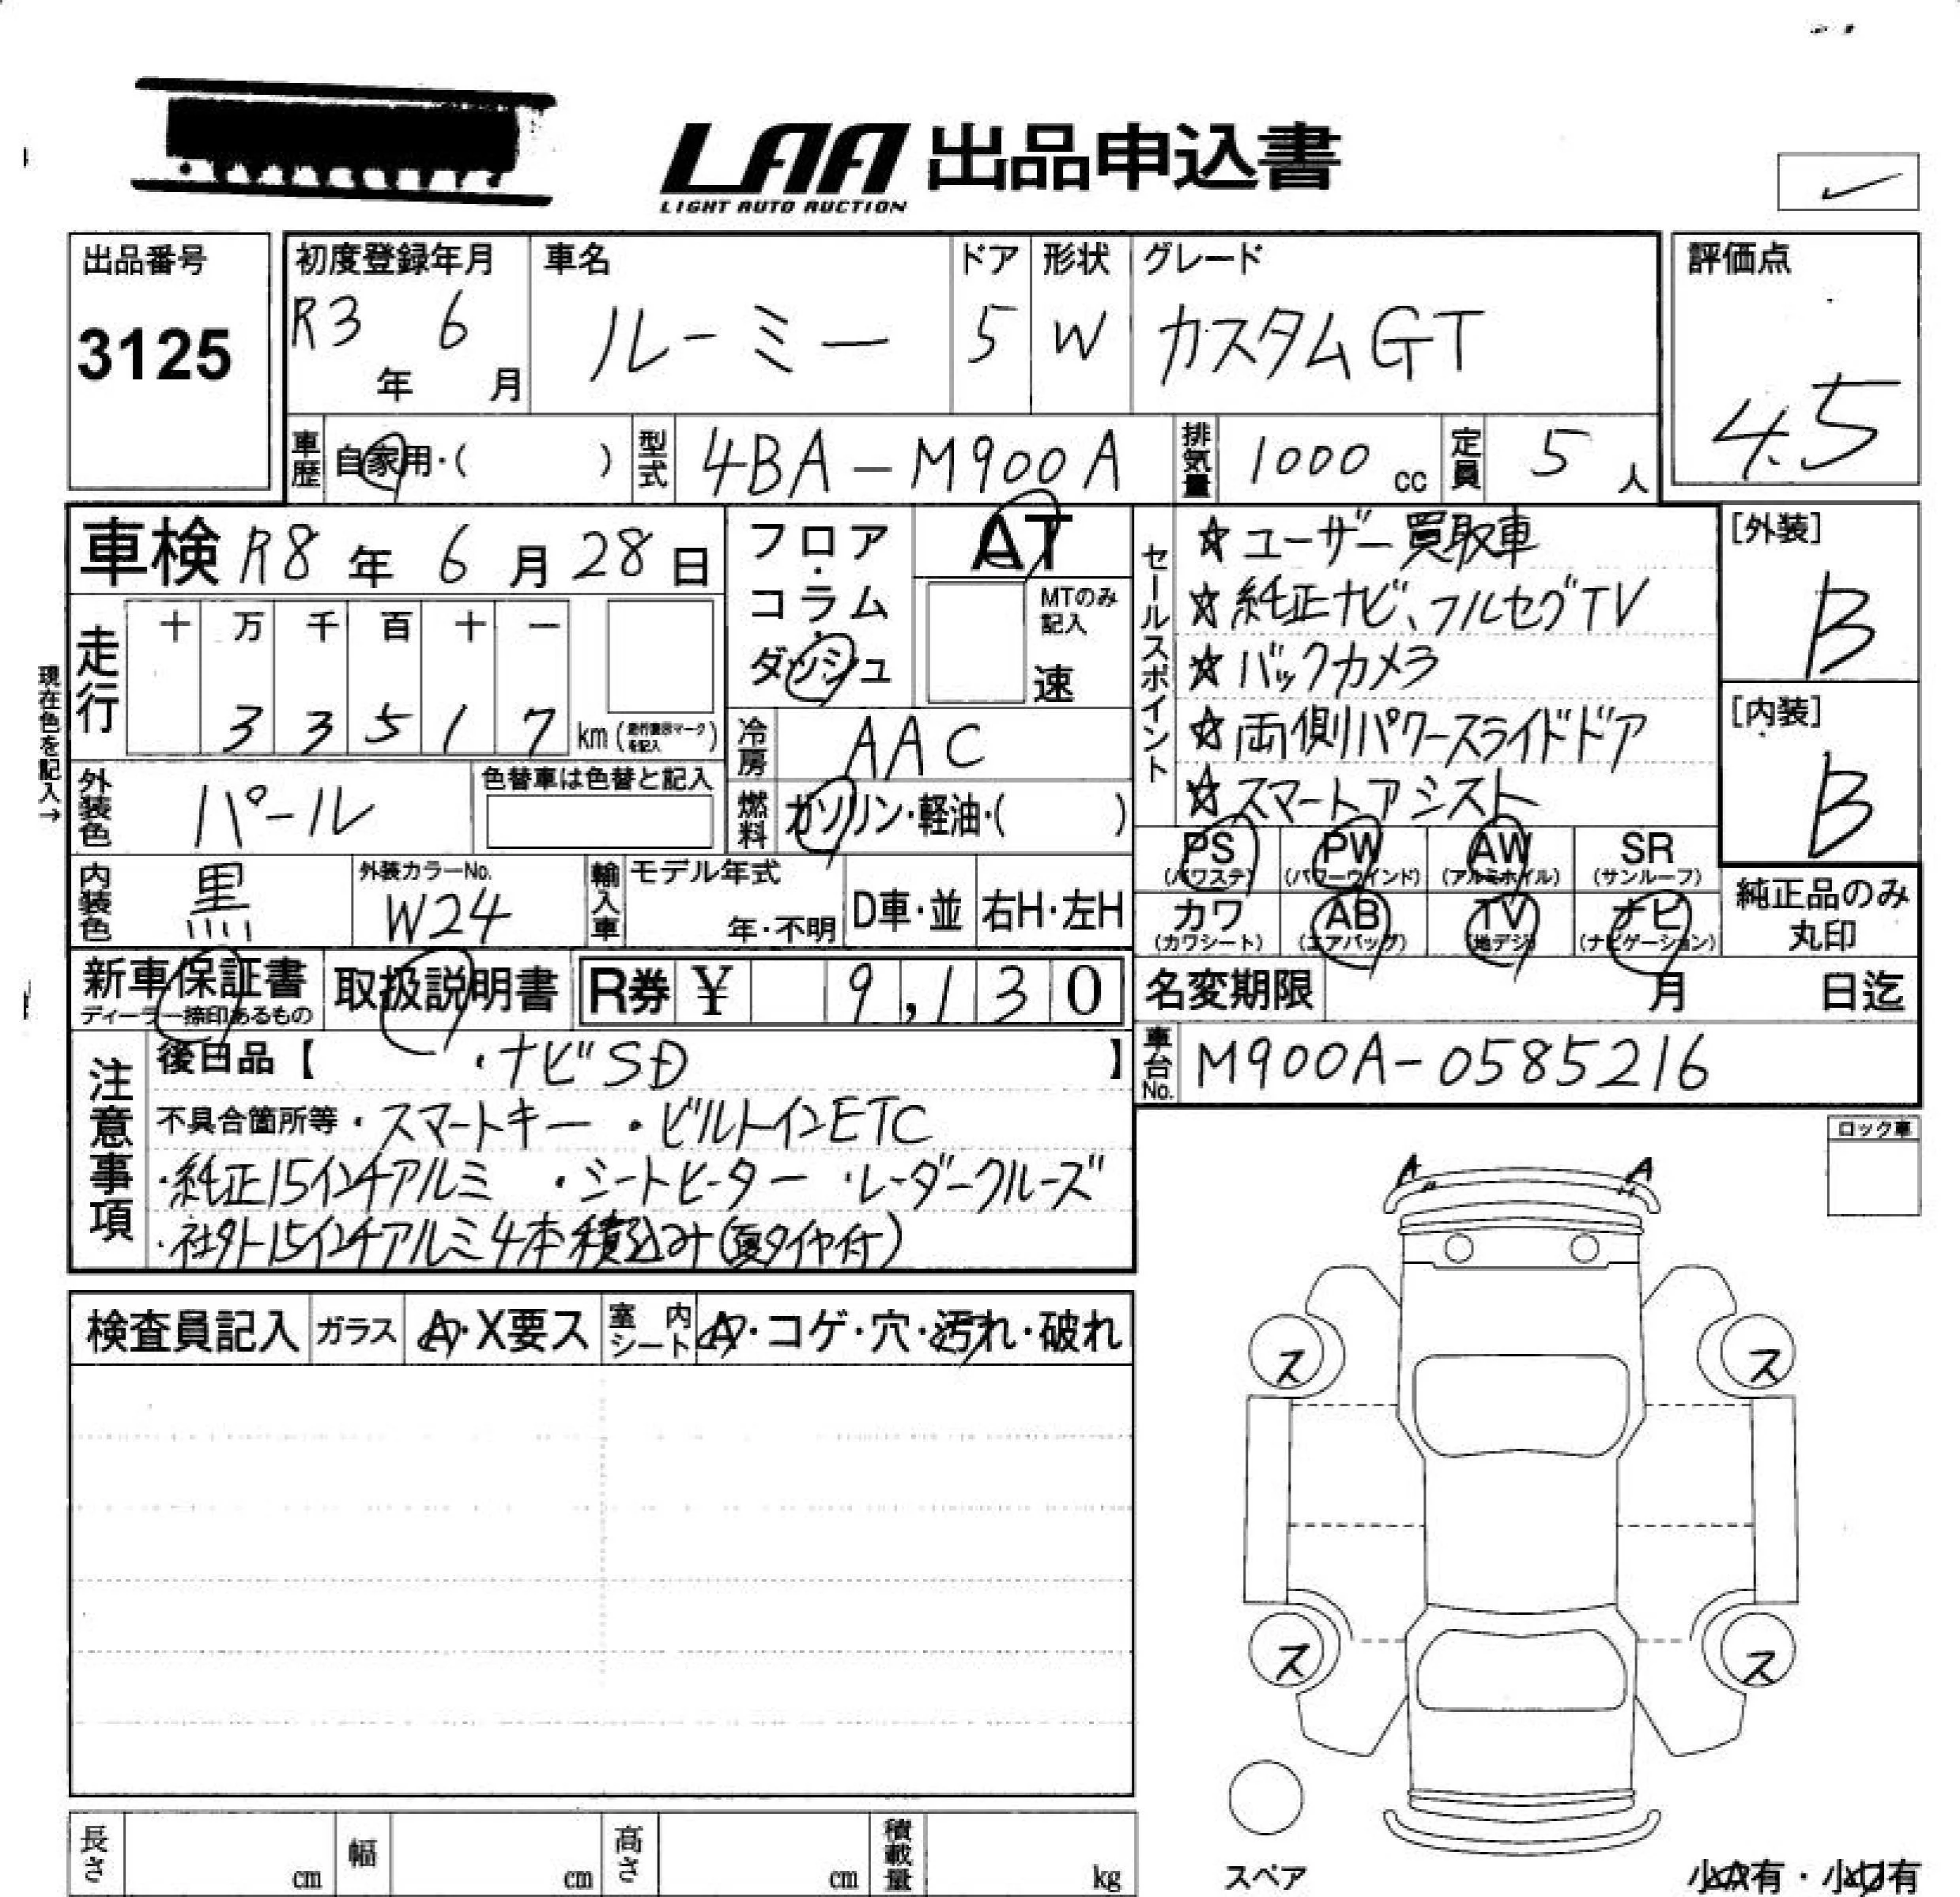 LAA 出品申込書
LIGHT AUTO AUCTION
出品番号
3125
初度登録年月
R3年 6月
車名
ルーミー
ドア
5
形状
W
グレード
カスタムGT
評価点
4.5
車歴 自家用・( )
型式 4BA-M900A
排気量 1000 cc
定員 5 人
車検 R8年 6月 28日
走行 十 万 千 百 十 一
3 3 5 1 7 km
現在色を記入→
フロア・コラム・ダッシュ
AT
MTのみ記入
速
冷房 AAC
燃料 ガソリン・軽油・( )
外装色 パール
色替車は色替と記入
内装色 黒
外装カラーNo.
W24
輸入車 モデル年式
年・不明
D車・並 右H・左H
セールスポイント
☆ユーザー買取車
☆純正ナビ、フルセグTV
☆バックカメラ
☆両側パワースライドドア
☆スマートアシスト
[外装]
B
[内装]
B
PS (パワステ)
PW (パワーウインド)
AW (アルミホイル)
SR (サンルーフ)
カワ (カワシート)
AB (エアバッグ)
TV (地デジ)
ナビ (ナビゲーション)
純正品のみ
丸印
新車保証書
ディーラー捺印あるもの
取扱説明書
R券 ¥ 9,130
名変期限 月 日迄
車台No. M900A-0585216
注意事項
後日品【 ・ナビSD 】
不具合箇所等・スマートキー ・ビルトインETC
・純正15インチアルミ ・シートヒーター ・レーダークルーズ
・社外15インチアルミ4本積込み(夏タイヤ付)
ロック車
A A
検査員記入 ガラス A・X要ス 室内シート A・コゲ・穴・汚れ・破れ
ス ス
ス ス
スペア
長さ cm 幅 cm 高さ cm 積載量 kg
小A有・小U有